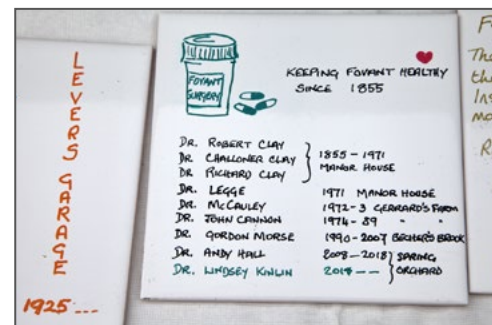 LEVERS GARAGE
1925 ...
FOVANT
SURGERY
KEEPING FOVANT HEALTHY
SINCE 1855
DR. ROBERT CLAY
DR. CHALLONER CLAY
DR RICHARD CLAY
1855 - 1971
MANOR HOUSE
DR. LEGGE 1971 MANOR HOUSE
DR. McCAULEY 1972-3 GERRARD'S FARM
DR. JOHN CANNON 1974 - 89 " "
DR. GORDON MORSE 1990 - 2007 BECHER'S BROOK
DR. ANDY HALL 2008 - 2018 } SPRING
DR. LINDSEY KINLIN 2018 -- } ORCHARD
F
The
th
Ins
mo
R